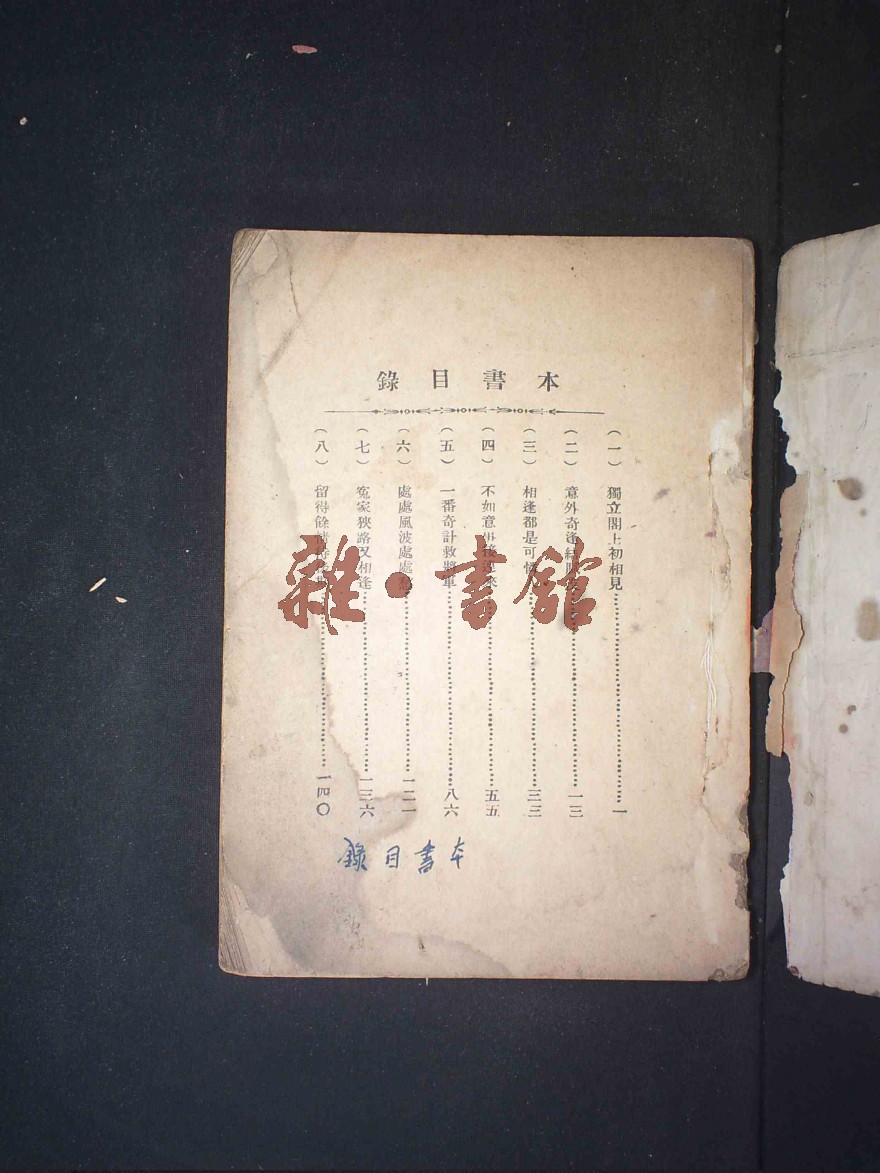 本書目錄
（一） 獨立閣上初相見……一
（二） 意外奇逢……一三
（三） 相逢都是可……三三
（四） 不如意……五五
（五） 一番奇計救將軍……八六
（六） 處處風波處處……一二一
（七） 冤家狹路又相逢……一三六
（八） 留得餘……一四〇
本書目錄
雜·書館